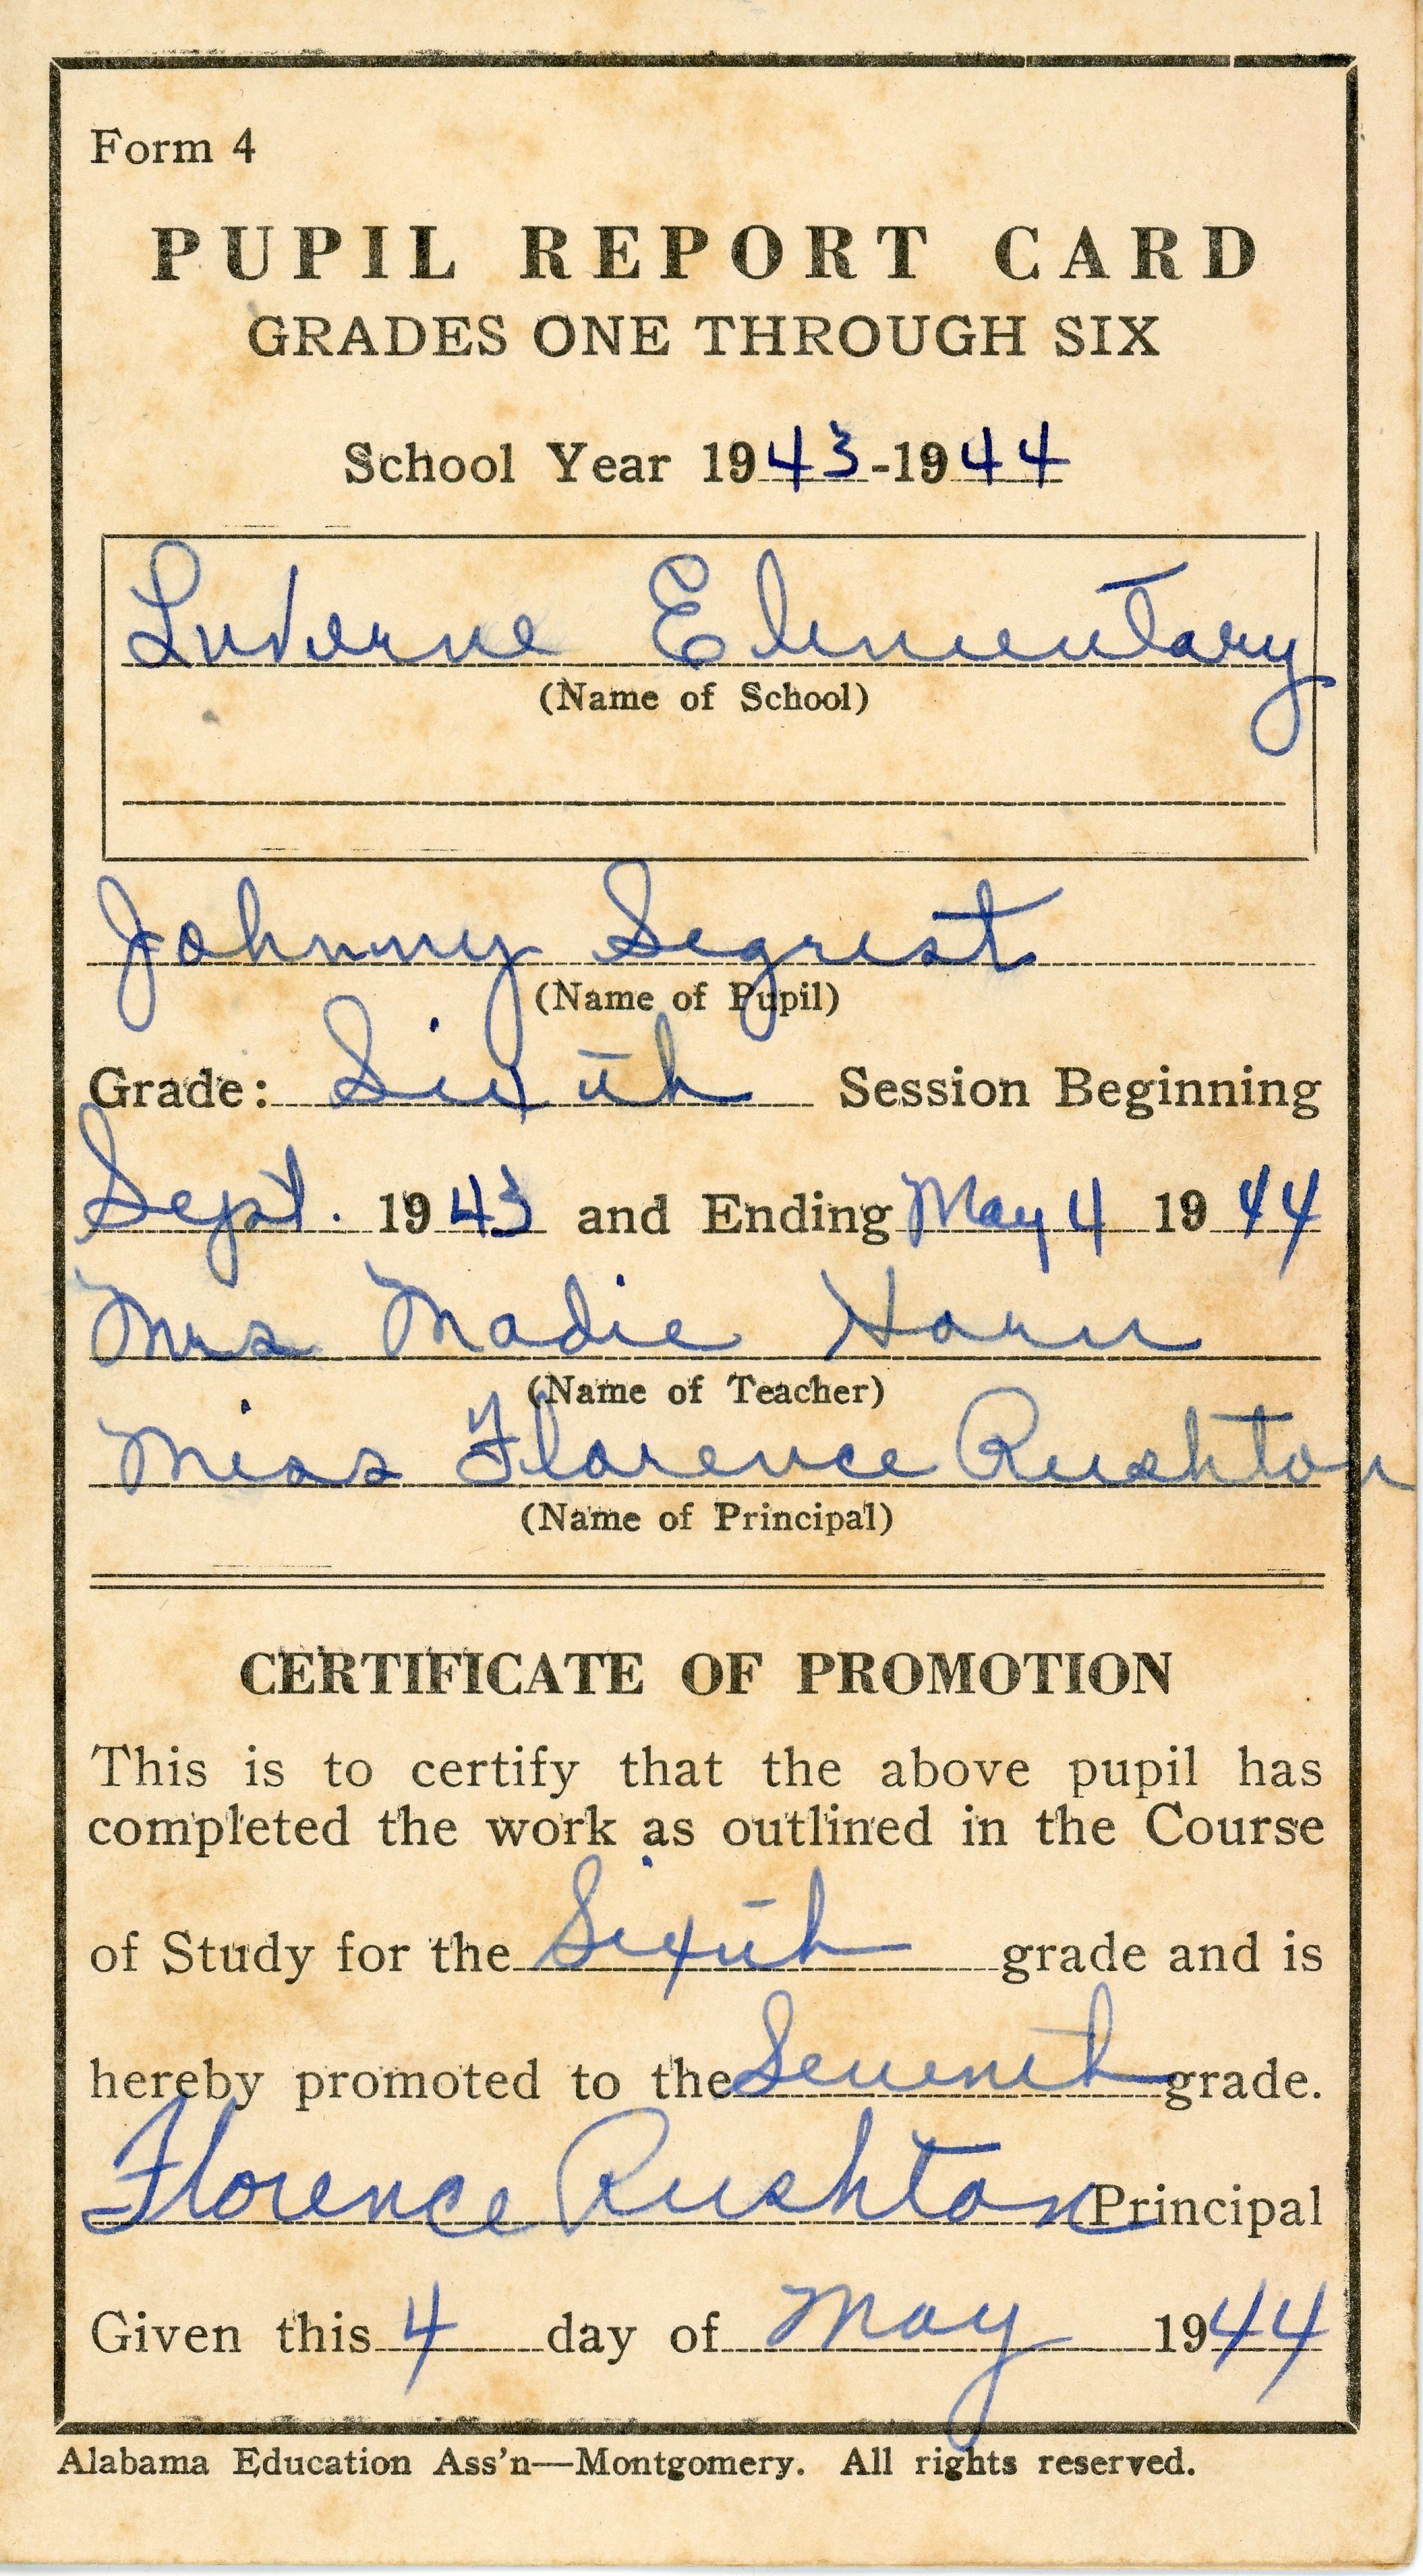 Form 4
PUPIL REPORT CARD
GRADES ONE THROUGH SIX
School Year 1943-1944
Luverne Elementary
(Name of School)
Johnny Segrest
(Name of Pupil)
Grade: Sixth Session Beginning
Sept. 1943 and Ending May 4 1944
Mrs Madie Horn
(Name of Teacher)
Miss Florence Rushton
(Name of Principal)
CERTIFICATE OF PROMOTION
This is to certify that the above pupil has
completed the work as outlined in the Course
of Study for the Sixth grade and is
hereby promoted to the Seventh grade.
Florence Rushton Principal
Given this 4 day of May 1944
Alabama Education Ass'n—Montgomery. All rights reserved.